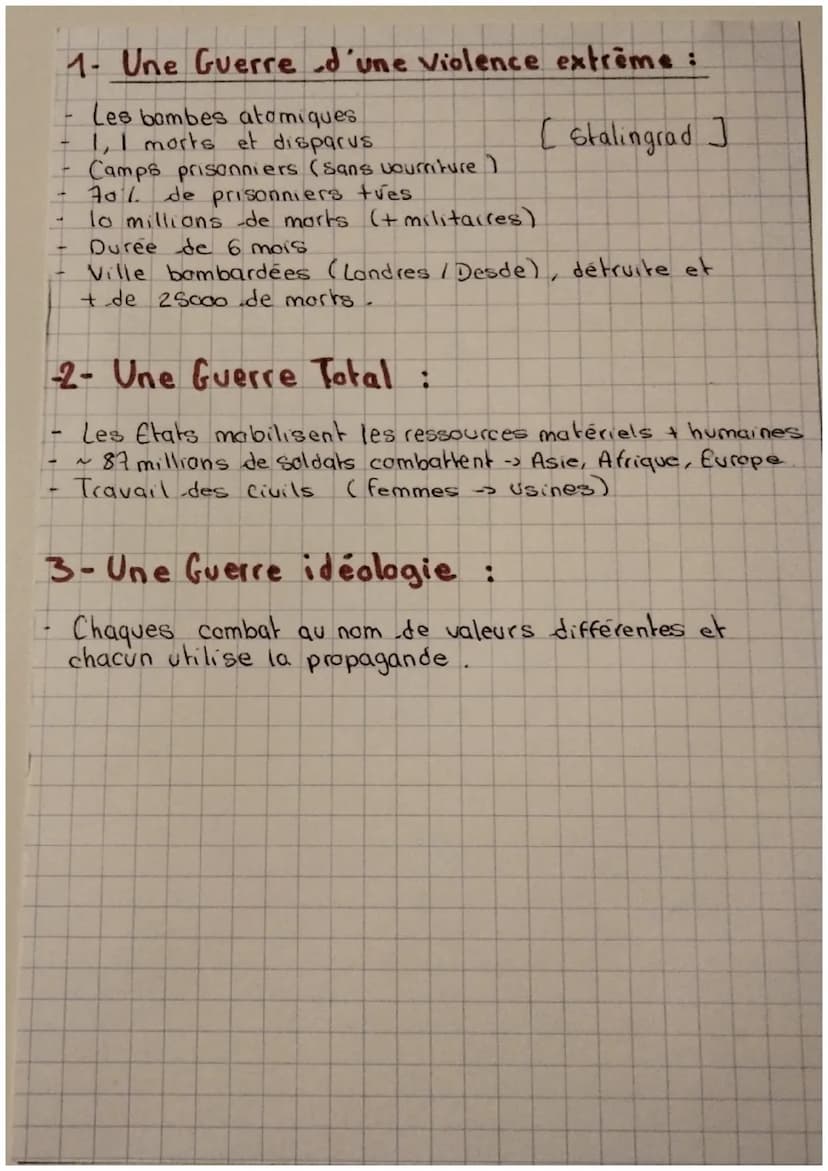 1- Une Guerre d'une violence extrême :
- Les bombes atomiques
- 1,1 morts et disparus [ Stalingrad ]
- Camps prisonniers (sans vourriture)
- 70% de prisonniers tués
- 10 millions de morts (+ militaires)
- Durée de 6 mois
- Ville bombardées (Londres / Desde), détruite et
+ de 25000 de morts.
2- Une Guerre Total :
- Les Etats mobilisent les ressources matériels + humaines
- ~ 87 millions de soldats combattent -> Asie, Afrique, Europe
- Travail des civils (femmes -> usines)
3- Une Guerre idéologie :
- Chaques combat au nom de valeurs différentes et
chacun utilise la propagande.